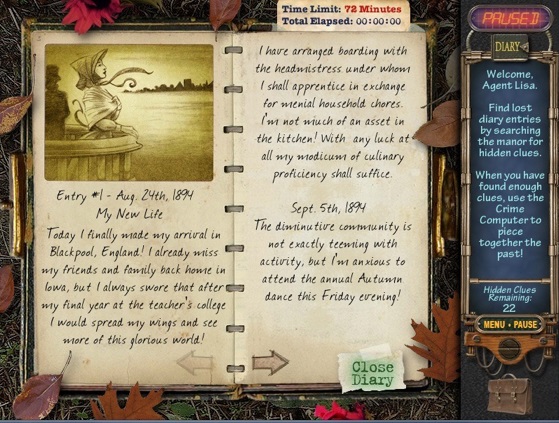 Time Limit: 72 Minutes
Total Elapsed: 00:00:00
Entry #1 - Aug. 24th, 1894
My New Life
Today I finally made my arrival in
Blackpool, England! I already miss
my friends and family back home in
Iowa, but I always swore that after
my final year at the teacher's college
I would spread my wings and see
more of this glorious world!
I have arranged boarding with
the headmistress under whom
I shall apprentice in exchange
for menial household chores.
I'm not much of an asset in
the kitchen! With any luck at
all my modicum of culinary
proficiency shall suffice.
Sept. 5th, 1894
The diminutive community is
not exactly teeming with
activity, but I'm anxious to
attend the annual Autumn
dance this Friday evening!
Close
Diary
PAUSED
DIARY
Welcome,
Agent Lisa.
Find lost
diary entries
by searching
the manor for
hidden clues.
When you have
found enough
clues, use the
Crime
Computer to
piece
together the
past!
Hidden Clues
Remaining:
22
MENU • PAUSE